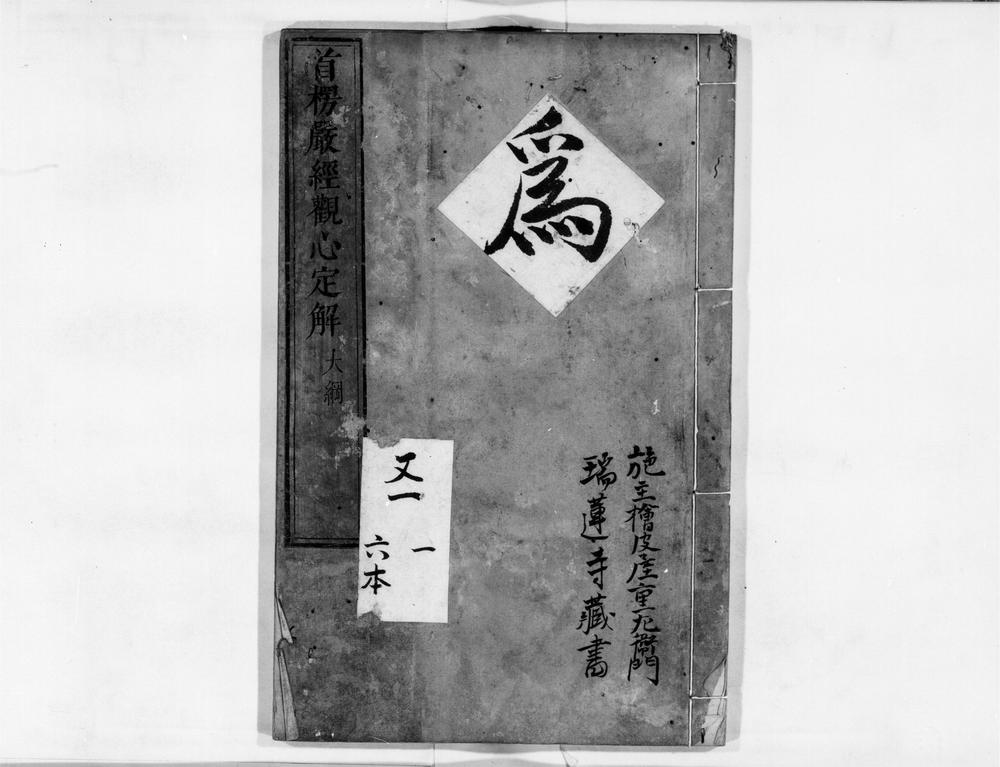 為
施主檜皮屋重左衛門
瑞蓮寺藏書
首楞嚴經觀心定解 大綱
又一
一
六本